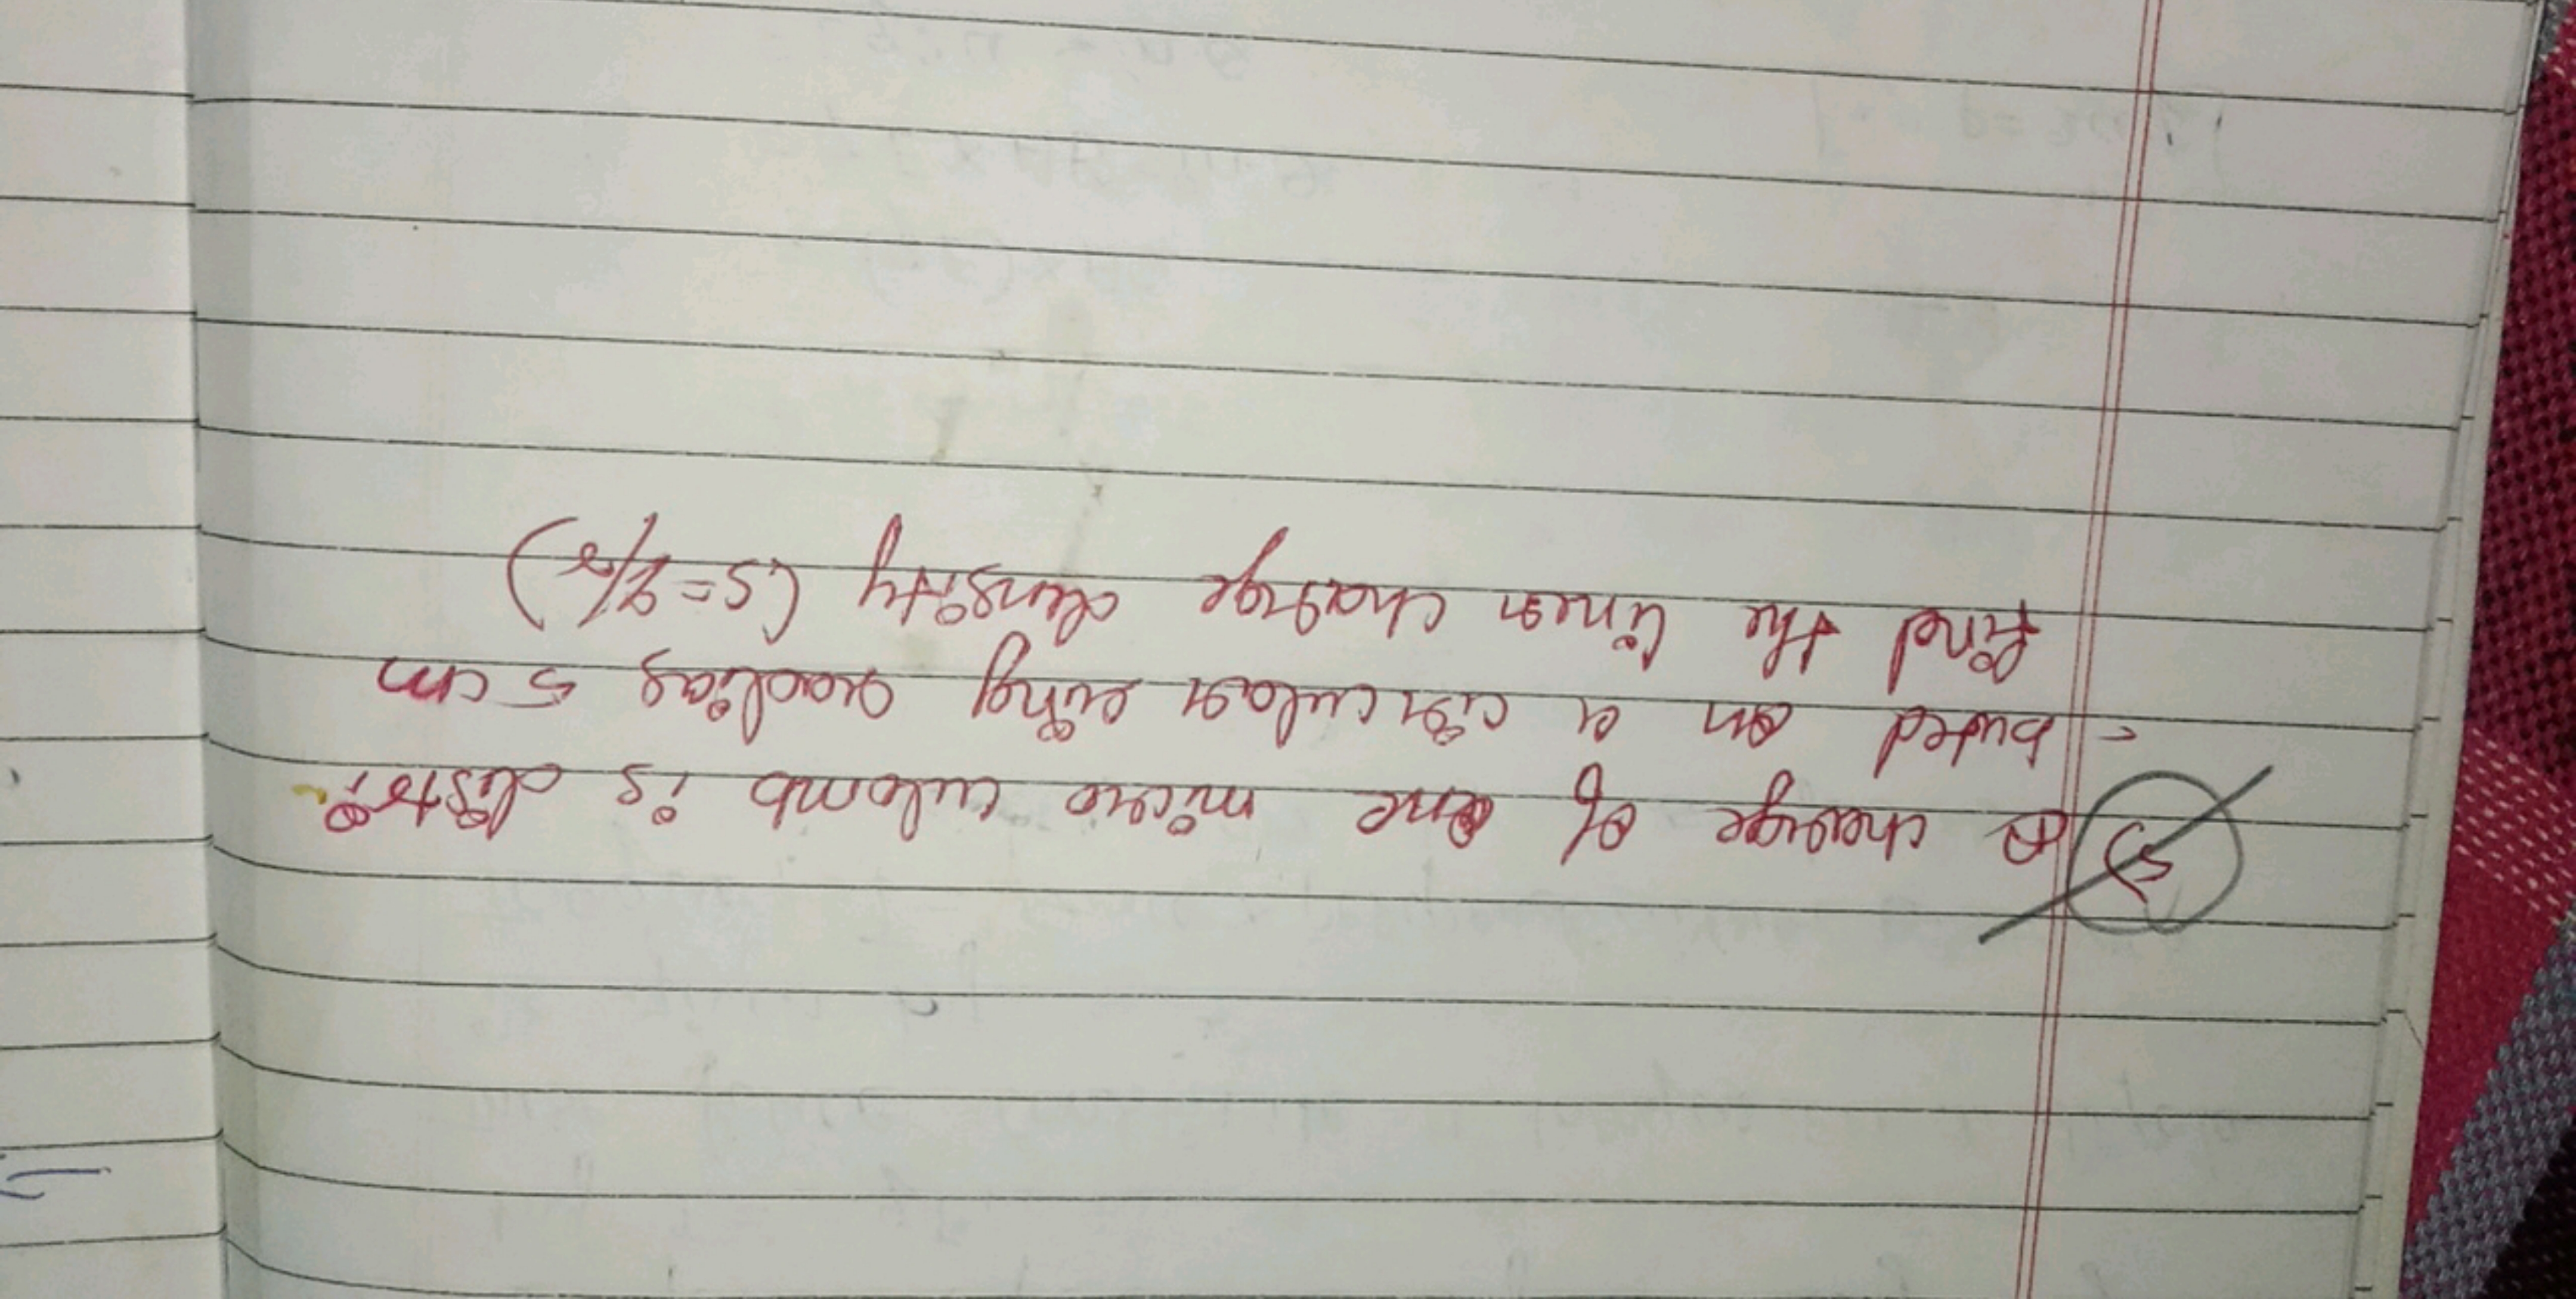 5) A charge of one micro culomb is distri
- buted on a circular ring radias 5 cm
find the liner charge density (s=q/r)